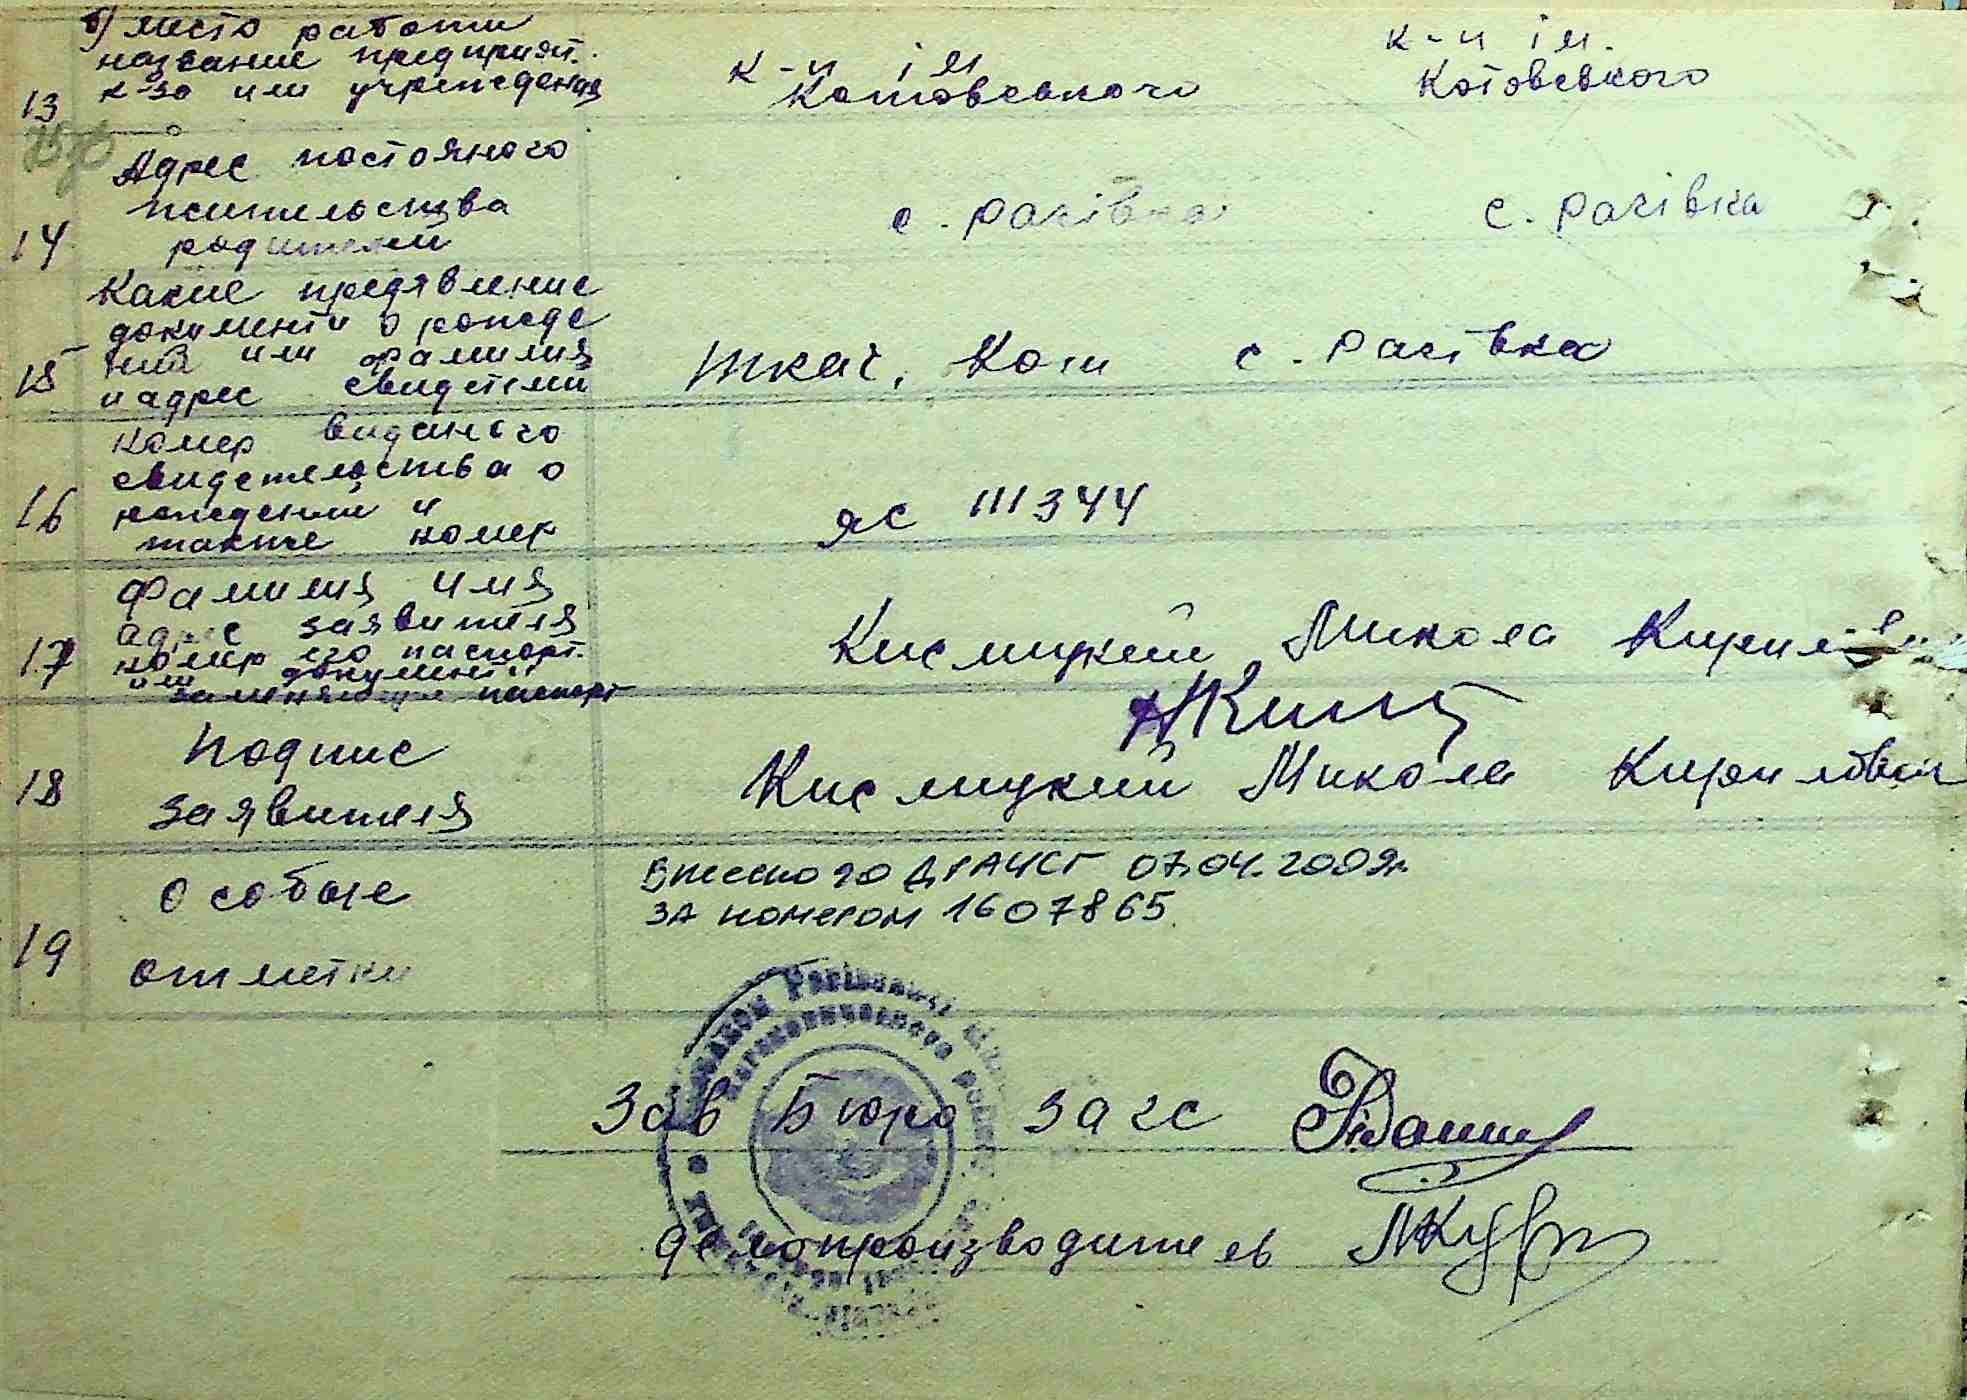 б) место работи
название предприят.
13 к-за или учреждения
к-п ім
Котовського
к-п ім.
Котовського
Адрес постояного
жительства
14 родителей
с. Рачівка
с. Рачівка
Какие предявление
документи о рожде
15 нии или фамилия
и адрес свидетели
Ткач, Кот с. Рачівка
номер виданого
свидетельства о
16 рождении и
також номер
яс 111344
Фамилия имя
адрес заявителя
17 номер его паспорт.
или документи
заменяющие паспорт
Кислицкий Микола Кирилович
18 Подпис
заявителя
Кислицкий Микола Кирилович
19 Особые
отметки
Внесено до ДРАЦСГ 07.04.2009р.
за номером 1607865
Зав Бюро Загс
делопроизводитель